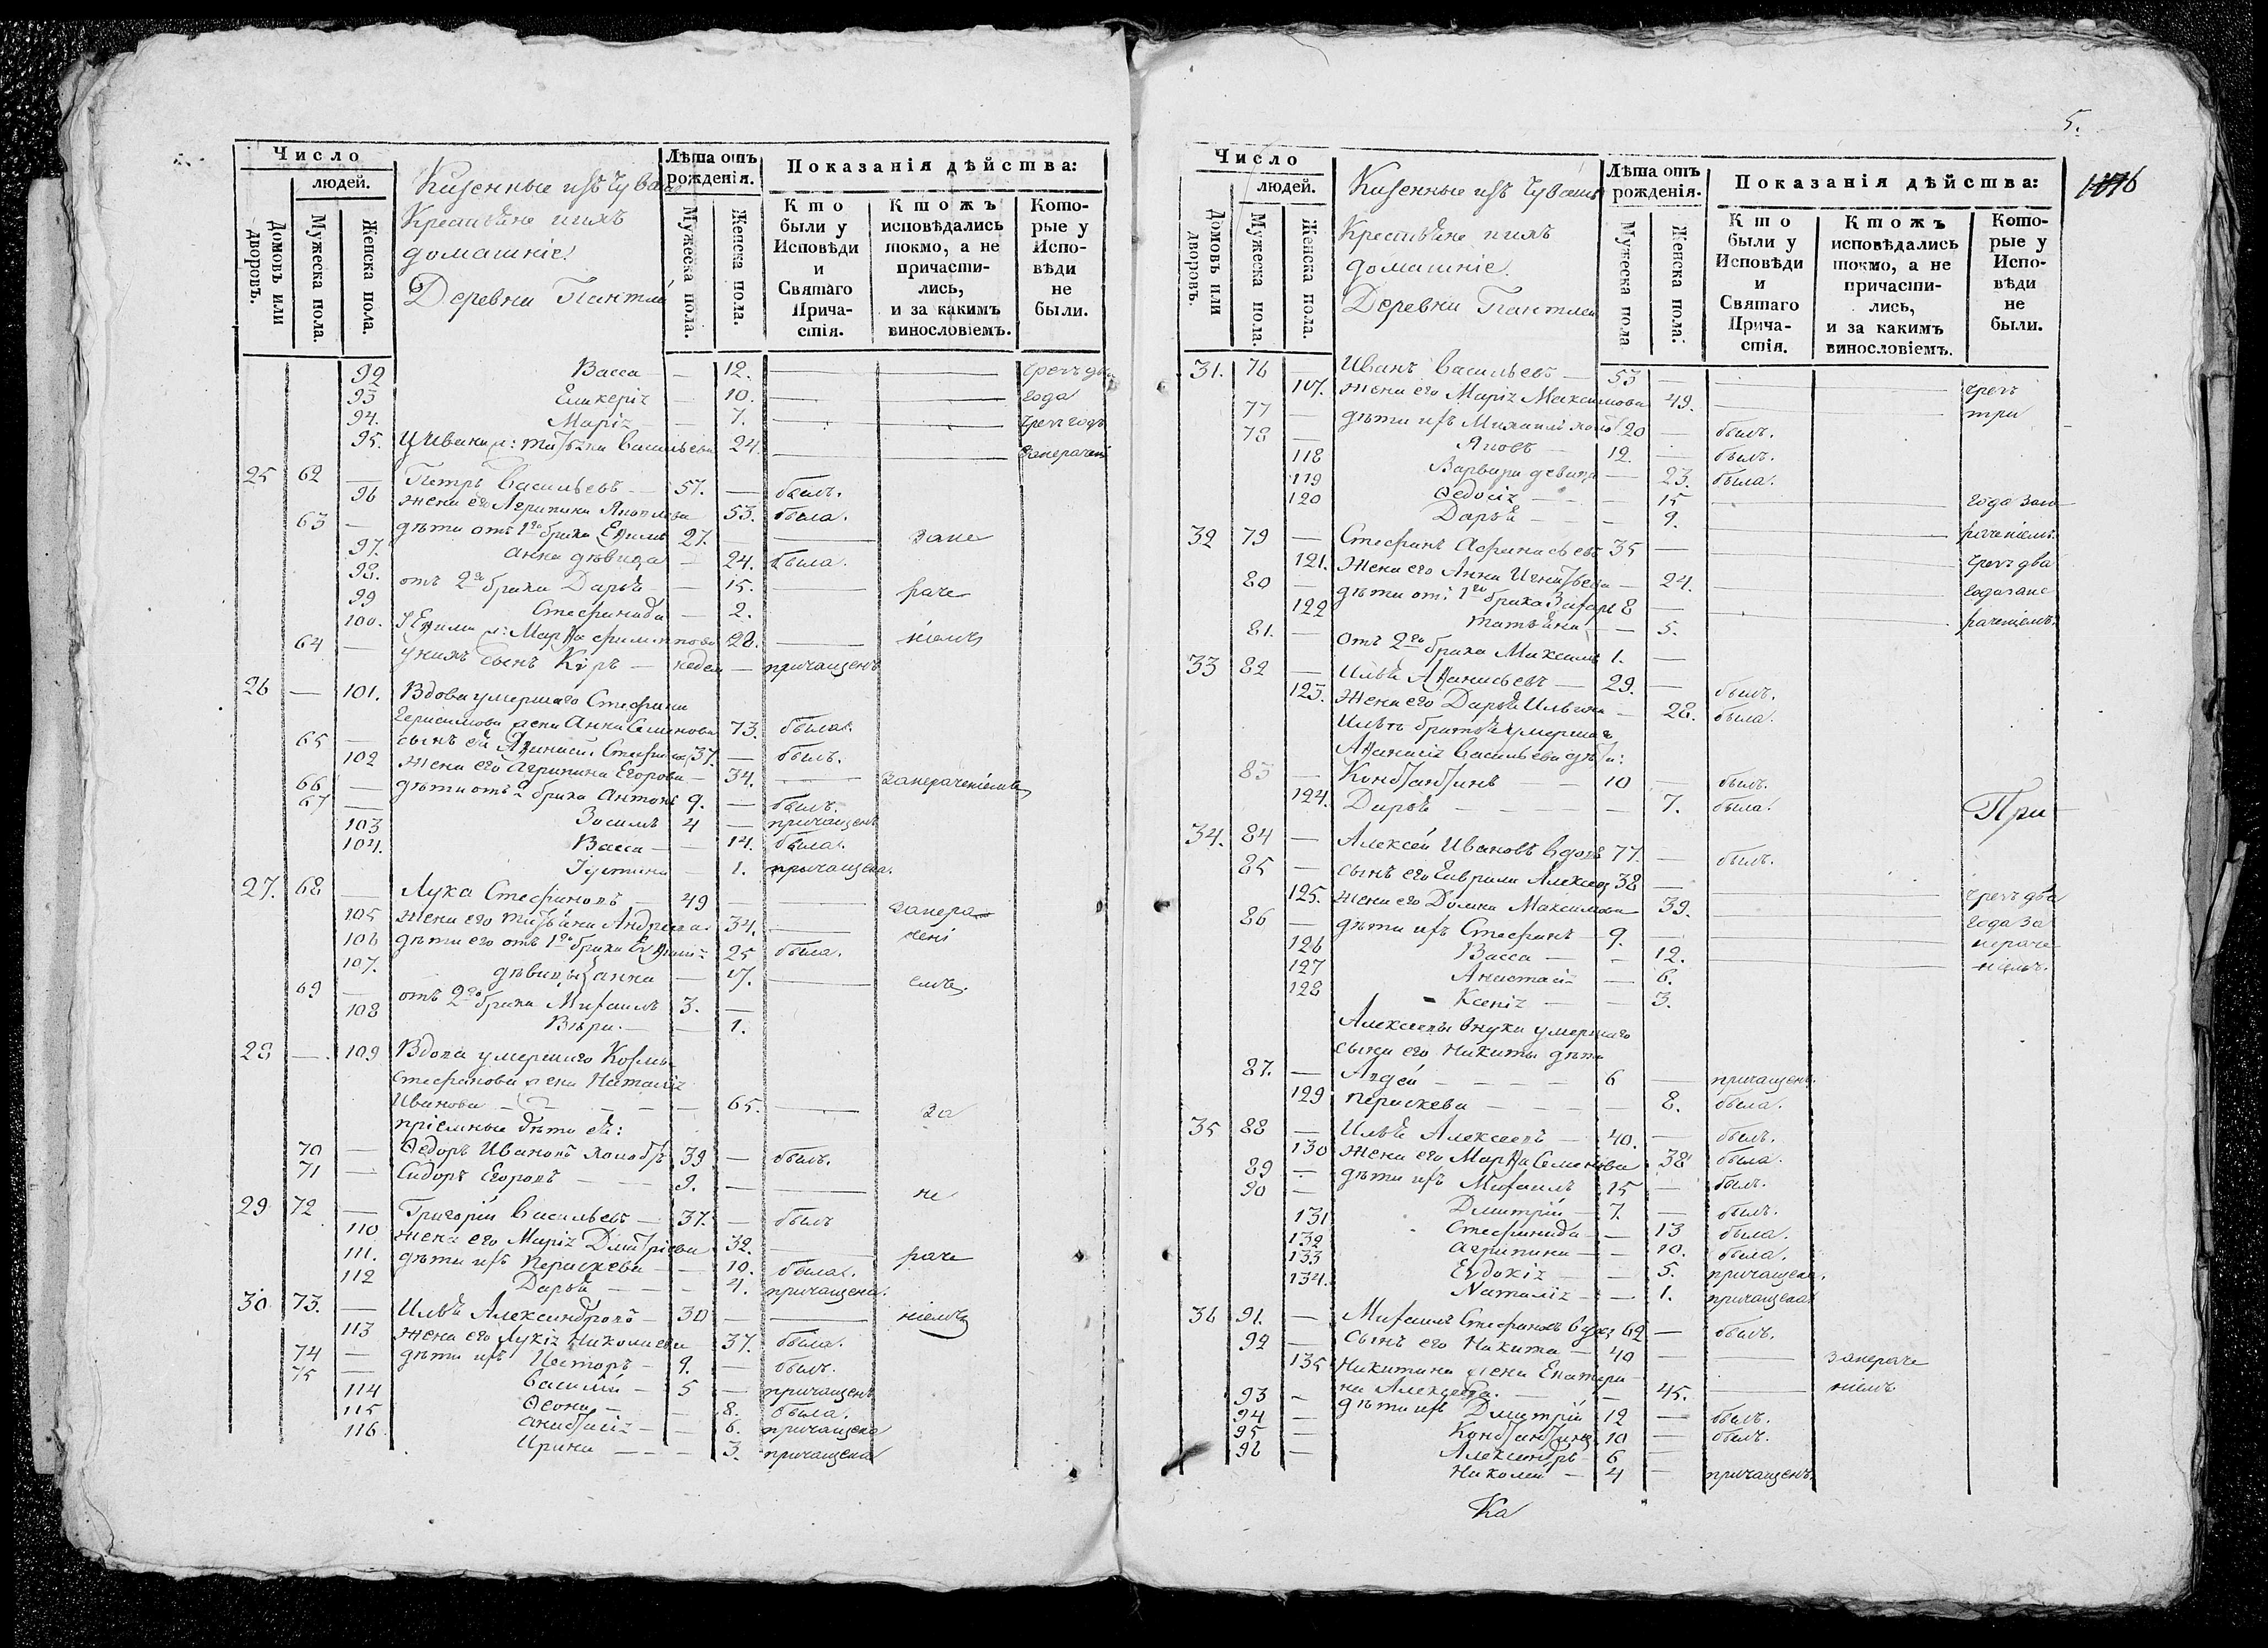 Число
людей.
Домовъ или дворовъ.
Мужеска пола.
Женска пола.
Казенные изъ Чувашъ
Крестьяне и ихъ
домашніе
Деревни
Лѣта отъ рожденія.
Мужеска пола.
Женска пола.
Показанія дѣйства:
Кто были у Исповѣди и Святаго Причастія.
Ктожъ исповѣдались токмо, а не причастились, и за какимъ винословіемъ.
Которые у Исповѣди не были.
92 Васса — 12. чрезъ два
93 Гликерія — 10. года
94. Марія — 7.
95. Васильева 24.
25 62 — Петръ Васильевъ — 57. — былъ.
96 жена его Агрипина 53. была.
63 — дѣти отъ 1го брака 27. — зане
97. Анна дѣвица — 24. была.
98. отъ 2го брака Дарья — 15. — раче
99 Стефанида — 2.
100. 28. — ніемъ
64 — у нихъ сынъ Киръ — недел — причащенъ
26 — 101. Вдова умершаго Стефана
Герасимова жена Анна Семенова 73. была.
65 — сынъ ея Аѳанасій Стефановъ 37. — былъ.
102 жена его Агрипина Егорова — 34. — занераченіемъ
66 — дѣти отъ 2 брака Антонъ 9. — былъ.
67 — Зосимъ 4 — причащенъ
103 Васса — 14. была.
104. Іустина — 1. причащена.
27. 68 — Лука Стефановъ — 49 — занера
105 жена его Татьяна Андреева 34. — чені
106 дѣти его отъ 1го брака 25 была.
107. дѣвицы Анна — 17. — емъ.
69 — отъ 2го брака Михаилъ 3. —
108 Вѣра. — 1.
28 — 109 Вдова умершаго Козмы
Стефанова жена Наталія
Иванова — 65. — за
пріемные дѣти ея:
70 — Ѳедоръ Ивановъ холостъ 39 — былъ.
71 — Сидоръ Егоровъ — 9. — не
29 72 — Григорій Васильевъ — 37. — былъ
110 жена его Марія Дмитріева 32. — раче
111. дѣти ихъ Параскева — 10. была.
112 Дарья — 4. причащена.
30 73. — Илья Александровъ — 30 — ніемъ
113 жена его Лукія Николаева 37. была.
74 — дѣти ихъ Несторъ — 9. — былъ.
75 — Василій — 5 — причащенъ
114 — 8. была.
115 Анастасія — 6. причащена
116 Ирина — 3. причащена
5.
Число
людей.
Домовъ или дворовъ.
Мужеска пола.
Женска пола.
Казенные изъ Чувашъ
Крестьяне и ихъ
домашніе.
Деревни
Лѣта отъ рожденія.
Мужеска пола
Женска пола.
Показанія дѣйства:
Кто были у Исповѣди и Святаго Причастія.
Ктожъ исповѣдались токмо, а не причастились, и за какимъ винословіемъ.
Которые у Исповѣди не были.
31. 76 — Иванъ Васильевъ — 53 — чрезъ
117. жена его Марія Максимова 49. — три
77 — дѣти ихъ Михаилъ 20 — былъ.
78 — Яковъ — 12. — былъ.
118 Варвара дѣвица — 23. была.
119 Ѳедосія — 15 — года зане
120 Дарья — 9. — раченіемъ.
32 79 — Стефанъ Афанасьевъ 35 — чрезъ два
121. Жена его Анна Игнатьева — 24. — года зане
80 — дѣти отъ 1го брака Захаръ 8 — раченіемъ.
122 Татьяна — 5.
81. — отъ 2го брака Максимъ 1. —
33 82 — Илья Аѳанасьевъ — 29. — былъ.
123. жена его Дарья Ильина — 28. была.
Ильи братья умершаго
Аѳанасія Васильева дѣти:
83 — Константинъ — 10 — былъ.
124. Дарья — 7. была.
При
34. 84 — Алексей Ивановъ вдовъ 77. — былъ.
85 — сынъ его Гаврила Алексеевъ 38 — чрезъ два
125. жена его Домна Максимова 39. — года за
86 — дѣти ихъ Стефанъ — 9. — нераче
126 Васса — 12. — ніемъ.
127 Анастасія — 6.
128 Ксенія — 3.
Алексеевы внуки умершаго
сына его Никиты дѣти
87. — Авдей — 6 — причащенъ.
129 Параскева — 8. была.
35 88 — Илья Алексеевъ — 40. — былъ.
130 жена его Марѳа Семенова 38 была.
89 — дѣти ихъ Михаилъ 15 — былъ.
90 — Дмитрій — 7. — былъ.
131 Стефанида — 13 была.
132 Агрипина — 10. была.
133 Евдокія — 5. причащена.
134. Наталія — 1. причащена.
36 91. — Михаилъ Стефановъ вдовъ 62 — былъ.
92 — сынъ его Никита — 40 — занераче
135 Никитина жена Екатери
на Алексеева. — 45. — ніемъ
93 — дѣти ихъ Дмитрій 12 — былъ.
94 — Константинъ 10 — былъ.
95 — Александръ 6
96 — Николай — 4 — причащенъ.
Ка